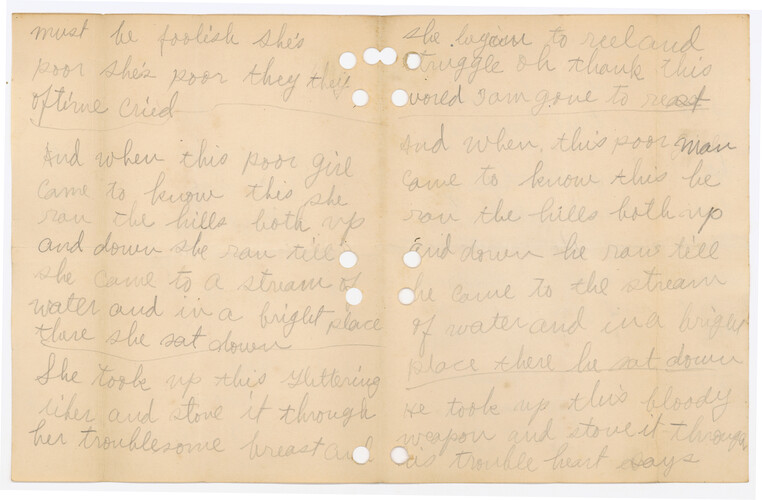 must be foolish she's
poor she's poor they they
oftime cried
And when this poor girl
came to know this she
ran the hills both up
and down she ran till
she came to a stream of
water and in a bright place
there she sat down
She took up this glittering
and stove it through
her troublesome breast and
she began to reel and
struggle oh thank this
I am gone to rest
And when this poor man
came to know this he
ran the hills both up
and down he ran till
he came to the stream
of water and in a bright
place there he sat down
He took up this bloody
weapon and stove it through
his trouble heart says